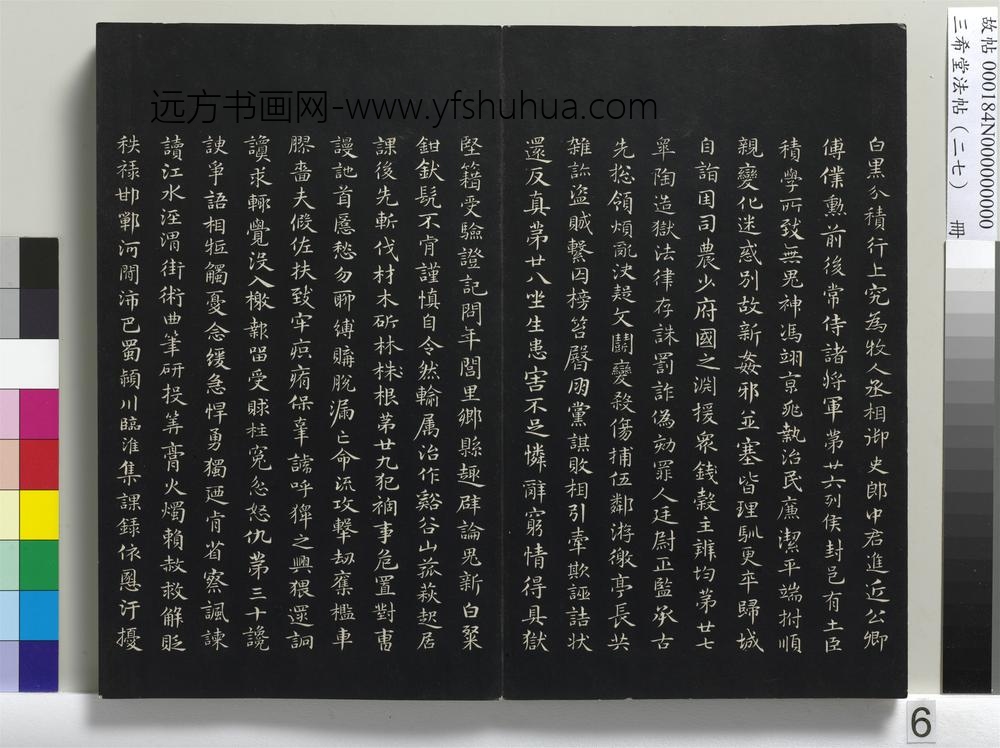 远方书画网-www.yfshuhua.com
故帖000184N000000000
三希堂法帖（二七） 冊
白黑分積行上究為牧人丞相御史郎中君進近公卿
傅僕勳前後常侍諸将軍第廿六列侯封邑有土臣
積學所致無鬼神馮翊京兆執治民廉潔平端拊順
親變化迷惑別故新姦邪並塞皆理馴更卒歸城
自詣因司農少府國之淵援衆錢穀主辨均第廿七
皐陶造獄法律存誅罰詐偽劾罪人廷尉正監承古
先捴領煩亂決疑文鬬變殺傷捕伍鄰游徼亭長共
雜診盜賊繫囚榜笞臀朋黨謀敗相引牽欺誣詰状
還反真第廿八坐生患害不足憐辭窮情得具獄
堅籍受驗證記問年閭里鄉縣趣辟論鬼新白粲
鉗釱髡不肯謹慎自令然輸属治作谿谷山菰萩起居
課後先斬伐材木斫林株根第廿九犯禍事危置對曹
謾訑首匿愁勿聊縛購脫漏亡命流攻撃劫奪檻車
膠嗇夫假佐扶致牢疻痏保辜謕呼獆之興猥逯詗
讂求輒覺没入檄報留受賕枉冤忿怒仇第三十讒
諛爭語相牴觸憂念緩急悍勇獨迺肯省察諷諫
讀江水涇渭街術曲筆研投筭膏火燭賴赦救解貶
秩禄邯鄲河間沛巴蜀潁川臨淮集課録依恩汙擾
6